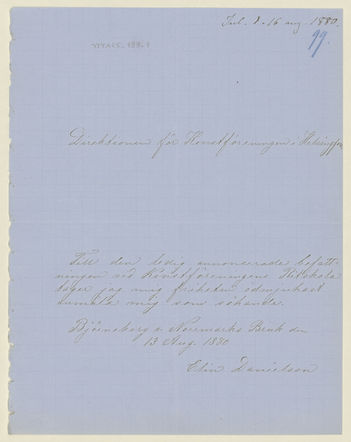 Inl. d. 16 aug. 1880.
99.
Direktionen för Konstföreningen i Helsingfors
Till den ledig annoncerade befatt-
ningen vid Konstföreningens Ritskola
tager jag mig friheten ödmjukast
anmäla mig som sökande.
Björneborg & Norrmarks Bruk den
13 Aug. 1880
Elin Danielson